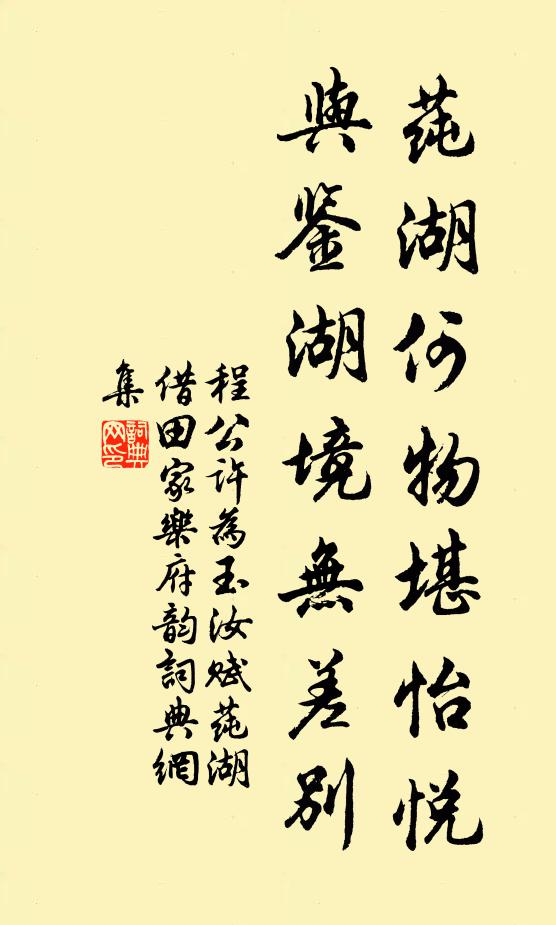 莼湖何物堪怡悦
與鉴湖境無差别
程公許為玉汝赋莼湖
借田家樂府韵詞典網
集
詞典網印